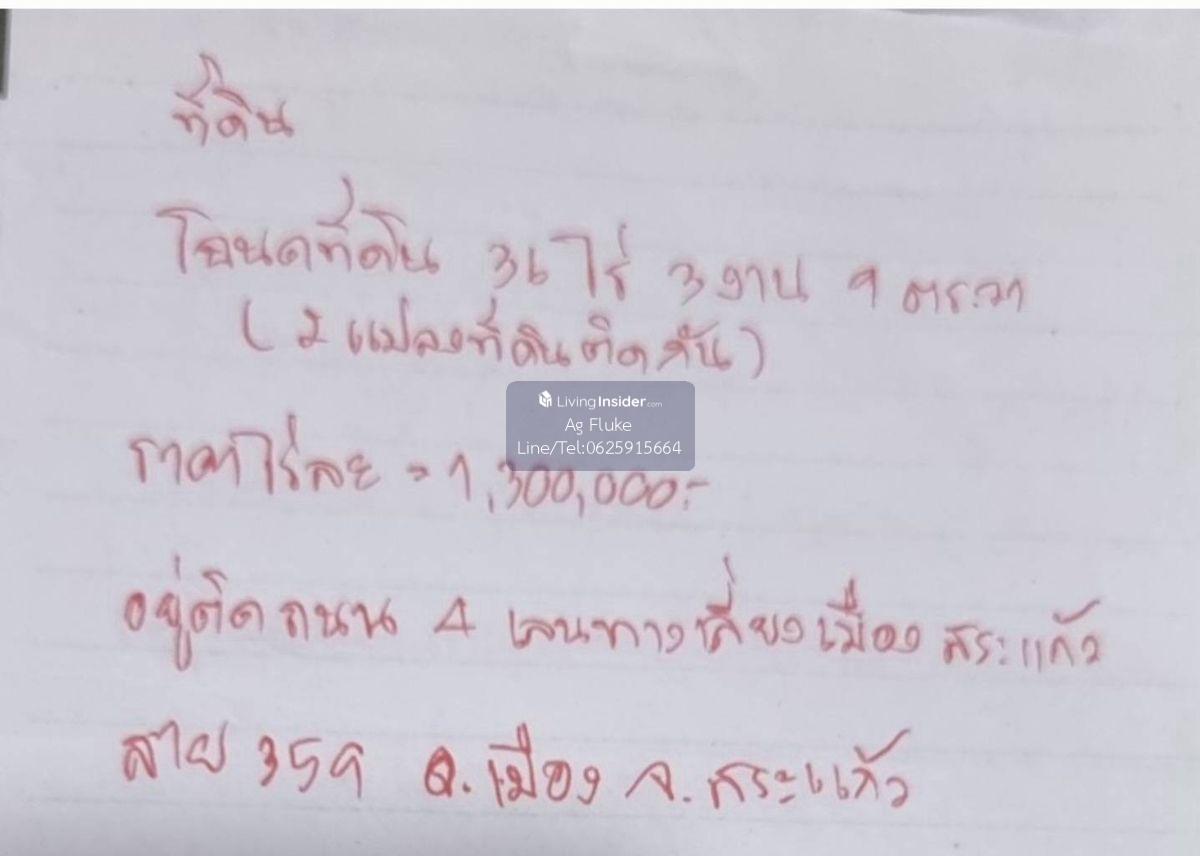 ที่ดิน
โฉนดที่ดิน 36 ไร่ 3 งาน 9 ตร.วา
( 2 แปลงที่ดินติดกัน )
LivingInsider.com
Ag Fluke
Line/Tel:0625915664
ราคาไร่ละ = 1,300,000.-
อยู่ติดถนน 4 เลนทางเลี่ยงเมือง สระแก้ว
สาย 359 อ.เมือง จ.สระแก้ว